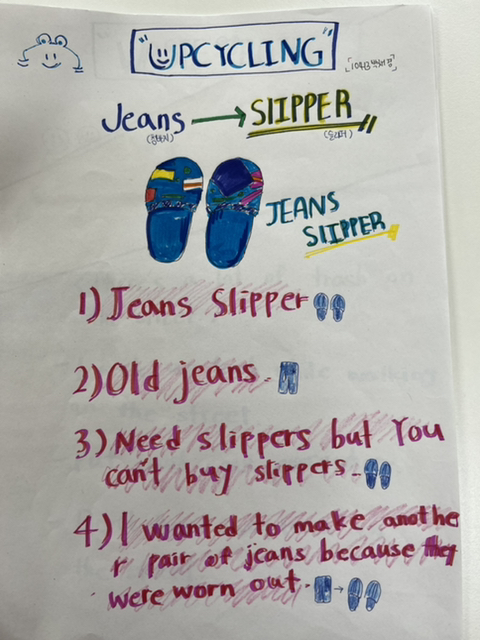 "UPCYCLING"
Jeans → SLIPPER
(청바지) (슬리퍼)
JEANS
SLIPPER
1) Jeans Slipper
2) Old jeans.
3) Need slippers but You
can't buy slippers.
4) I wanted to make anothe
r pair of jeans because they
were worn out.